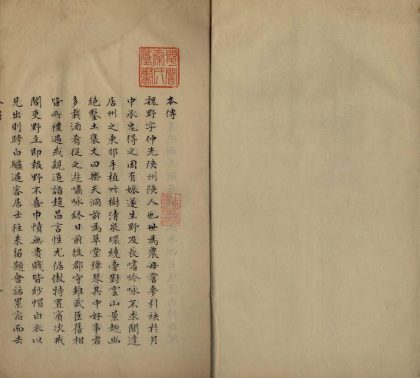 本傳
魏野字仲先陝州陝人也世為農母嘗夢引袂於月
中承兔得之因有娠遂生野及長嗜吟咏不求聞達
居州之東郊手植竹樹清泉環繞旁對雲山景趣幽
絕鑿土袤丈曰樂天洞前為草堂彈琴其中好事者
多載酒殽從之遊嘯咏終日前後郡守雖武臣舊相
皆所禮遇或親造謁趙昌言性尤倨傲特署賓次戒
閽吏野至即報野不喜巾幘無貴賤皆紗帽白衣以
見出則跨白驢過客居士往來留題會話累宿而去